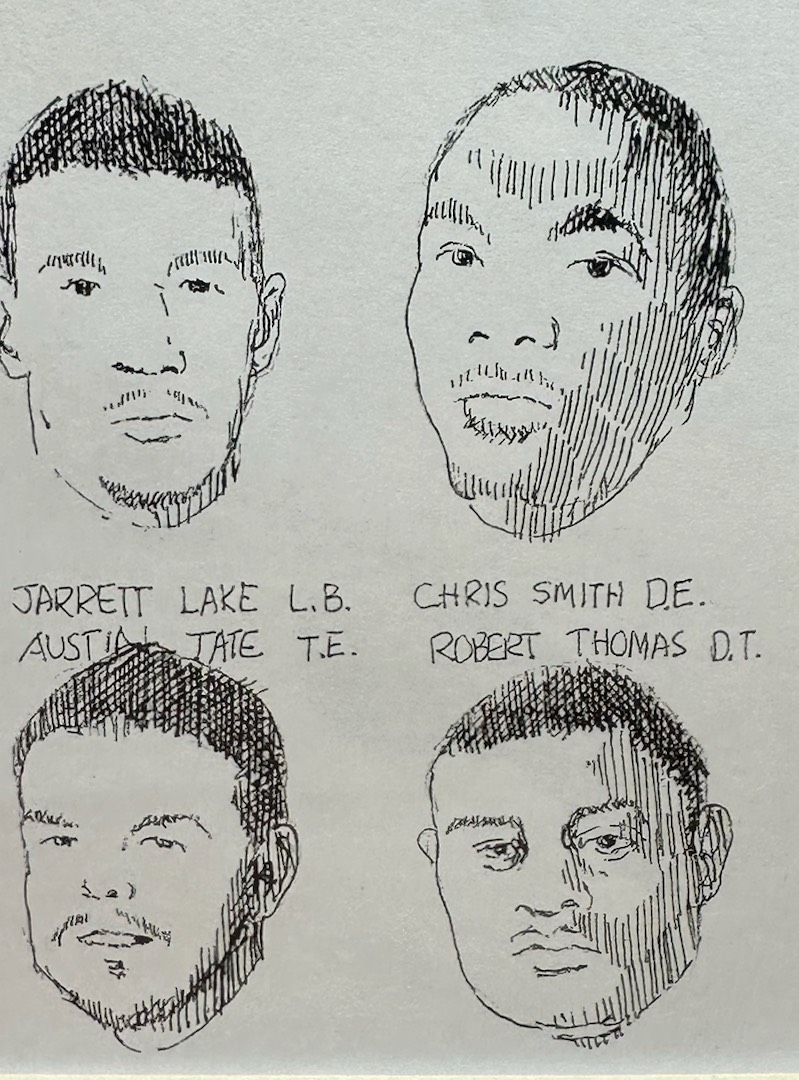 JARRETT LAKE L.B.
CHRIS SMITH D.E.
AUSTIN TATE T.E.
ROBERT THOMAS D.T.